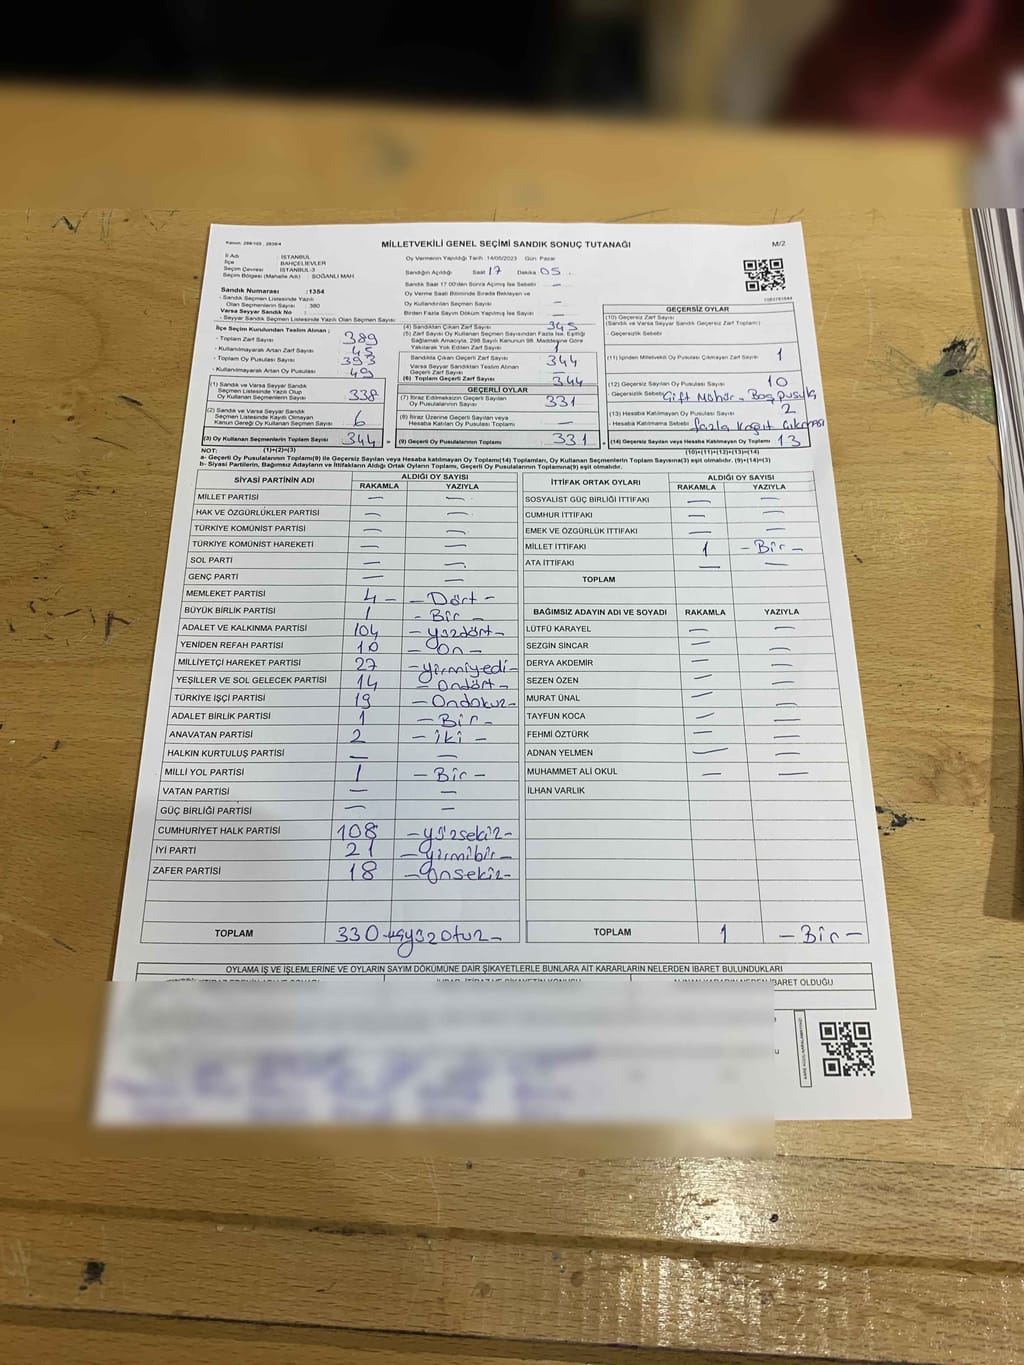 Kanun: 298/105 , 2839/4
MİLLETVEKİLİ GENEL SEÇİMİ SANDIK SONUÇ TUTANAĞI
M/2
İl Adı : İSTANBUL
İlçe : BAHÇELİEVLER
Seçim Çevresi : İSTANBUL-3
Seçim Bölgesi (Mahalle Adı) : SOĞANLI MAH.
Oy Vermenin Yapıldığı Tarih : 14/05/2023 Gün: Pazar
Sandığın Açıldığı Saat 17 Dakika 05
Sandık Saat 17:00'den Sonra Açılmış İse Sebebi —
Oy Verme Saati Bitiminde Sırada Bekleyen ve
Oy Kullandırılan Seçmen Sayısı —
Birden Fazla Sayım Döküm Yapılmış İse Sayısı —
Sandık Numarası :1354
- Sandık Seçmen Listesinde Yazılı
Olan Seçmenlerin Sayısı : 380
Varsa Seyyar Sandık No :
- Seyyar Sandık Seçmen Listesinde Yazılı Olan Seçmen Sayısı :
İlçe Seçim Kurulundan Teslim Alınan ;
- Toplam Zarf Sayısı 389
- Kullanılmayarak Artan Zarf Sayısı 45
- Toplam Oy Pusulası Sayısı 393
- Kullanılmayarak Artan Oy Pusulası 49
(1) Sandık ve Varsa Seyyar Sandık
Seçmen Listesinde Yazılı Olup
Oy Kullanan Seçmenlerin Sayısı 338
(2) Sandık ve Varsa Seyyar Sandık
Seçmen Listesinde Kayıtlı Olmayan
Kanun Gereği Oy Kullanan Seçmen Sayısı 6
(3) Oy Kullanan Seçmenlerin Toplam Sayısı 344 =
(4) Sandıktan Çıkan Zarf Sayısı 345
(5) Zarf Sayısı Oy Kullanan Seçmen Sayısından Fazla İse, Eşitliği
Sağlamak Amacıyla, 298 Sayılı Kanunun 98. Maddesine Göre
Yakılarak Yok Edilen Zarf Sayısı 1
Sandıkta Çıkan Geçerli Zarf Sayısı 344
Varsa Seyyar Sandıktan Teslim Alınan
Geçerli Zarf Sayısı —
(6) Toplam Geçerli Zarf Sayısı 344
GEÇERLİ OYLAR
(7) İtiraz Edilmeksizin Geçerli Sayılan
Oy Pusulalarının Sayısı 331
(8) İtiraz Üzerine Geçerli Sayılan veya
Hesaba Katılan Oy Pusulası Toplamı —
(9) Geçerli Oy Pusulalarının Toplamı 331 +
GEÇERSİZ OYLAR
(10) Geçersiz Zarf Sayısı
(Sandık ve Varsa Seyyar Sandık Geçersiz Zarf Toplamı)
- Geçersizlik Sebebi
(11) İçinden Milletvekili Oy Pusulası Çıkmayan Zarf Sayısı 1
(12) Geçersiz Sayılan Oy Pusulası Sayısı 10
- Geçersizlik Sebebi Çift Mühür - Boş pusula
(13) Hesaba Katılmayan Oy Pusulası Sayısı 2
- Hesaba Katılmama Sebebi fazla Kağıt Çıkması
(14) Geçersiz Sayılan veya Hesaba Katılmayan Oy Toplamı 13
(10)+(11)+(12)+(13)=(14)
NOT: (1)+(2)=(3)
a- Geçerli Oy Pusulalarının Toplamı(9) ile Geçersiz Sayılan veya Hesaba katılmayan Oy Toplamı(14) Toplamları, Oy Kullanan Seçmenlerin Toplam Sayısına(3) eşit olmalıdır. (9)+(14)=(3)
b- Siyasi Partilerin, Bağımsız Adayların ve İttifakların Aldığı Ortak Oyların Toplamı, Geçerli Oy Pusulalarının Toplamına(9) eşit olmalıdır.
SİYASİ PARTİNİN ADI ALDIĞI OY SAYISI
RAKAMLA YAZIYLA
MİLLET PARTİSİ — —
HAK VE ÖZGÜRLÜKLER PARTİSİ — —
TÜRKİYE KOMÜNİST PARTİSİ — —
TÜRKİYE KOMÜNİST HAREKETİ — —
SOL PARTİ — —
GENÇ PARTİ — —
MEMLEKET PARTİSİ 4 - - Dört -
BÜYÜK BİRLİK PARTİSİ 1 - Bir -
ADALET VE KALKINMA PARTİSİ 104 - yüzdört -
YENİDEN REFAH PARTİSİ 10 - On -
MİLLİYETÇİ HAREKET PARTİSİ 27 - yirmiyedi -
YEŞİLLER VE SOL GELECEK PARTİSİ 14 - Ondört -
TÜRKİYE İŞÇİ PARTİSİ 19 - Ondokuz -
ADALET BİRLİK PARTİSİ 1 - Bir -
ANAVATAN PARTİSİ 2 - iki -
HALKIN KURTULUŞ PARTİSİ — —
MİLLİ YOL PARTİSİ 1 - Bir -
VATAN PARTİSİ — —
GÜÇ BİRLİĞİ PARTİSİ — —
CUMHURİYET HALK PARTİSİ 108 - yüzsekiz -
İYİ PARTİ 21 - yirmibir -
ZAFER PARTİSİ 18 - Onsekiz -
TOPLAM 330
İTTİFAK ORTAK OYLARI ALDIĞI OY SAYISI
RAKAMLA YAZIYLA
SOSYALİST GÜÇ BİRLİĞİ İTTİFAKI — —
CUMHUR İTTİFAKI — —
EMEK VE ÖZGÜRLÜK İTTİFAKI — —
MİLLET İTTİFAKI 1 - Bir -
ATA İTTİFAKI — —
TOPLAM
BAĞIMSIZ ADAYIN ADI VE SOYADI RAKAMLA YAZIYLA
LÜTFÜ KARAYEL — —
SEZGİN SİNCAR — —
DERYA AKDEMİR — —
SEZEN ÖZEN — —
MURAT ÜNAL — —
TAYFUN KOCA — —
FEHMİ ÖZTÜRK — —
ADNAN YELMEN — —
MUHAMMET ALİ OKUL — —
İLHAN VARLIK
TOPLAM 1 - Bir -
OYLAMA İŞ VE İŞLEMLERİNE VE OYLARIN SAYIM DÖKÜMÜNE DAİR ŞİKAYETLERLE BUNLARA AİT KARARLARIN NELERDEN İBARET BULUNDUKLARI
İBARET OLDUĞU